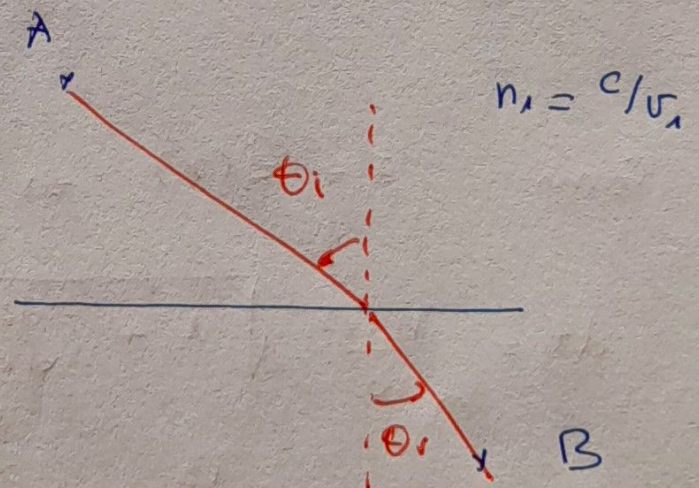 A
n₁ = c/v₁
θi
θr
B